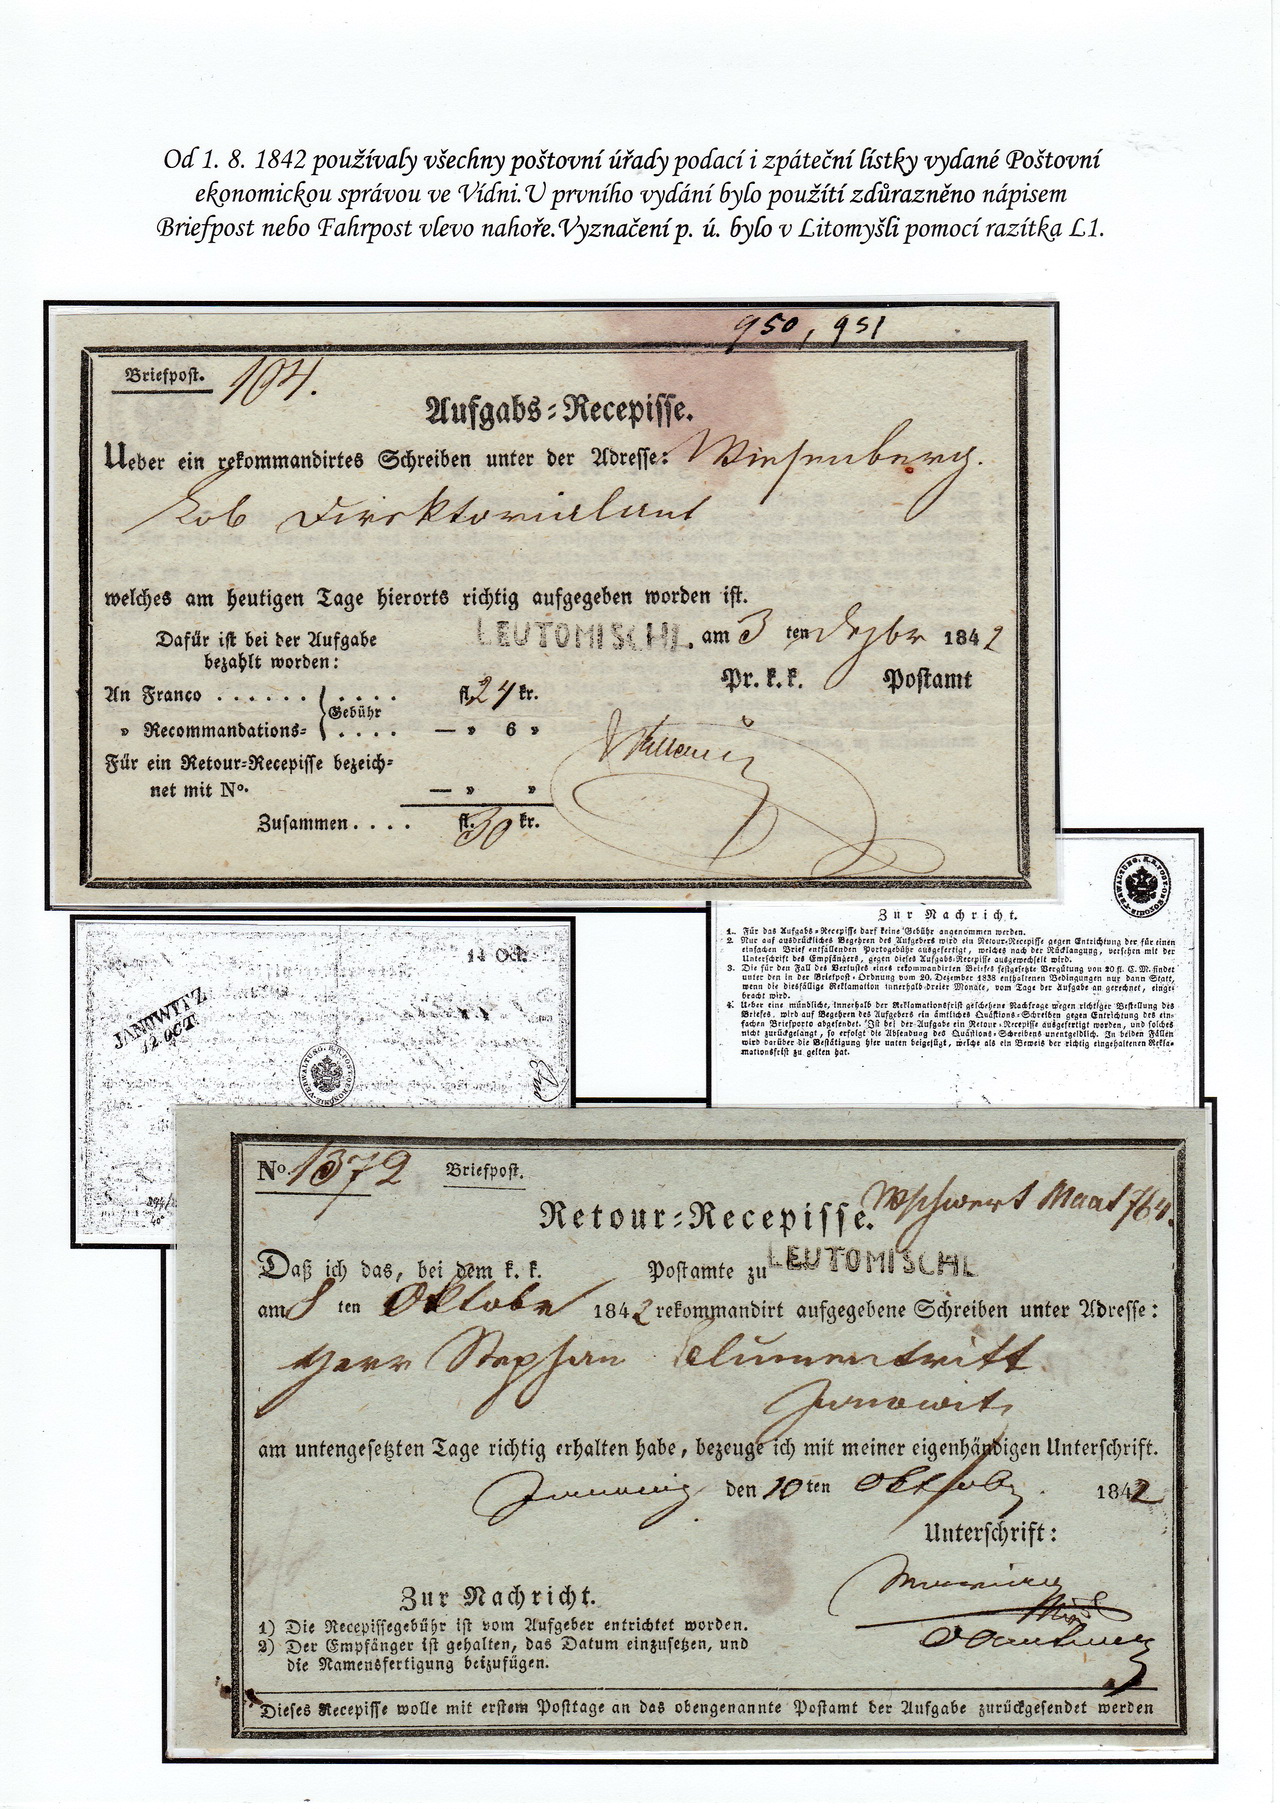 Od 1. 8. 1842 používaly všechny poštovní úřady podací i zpáteční lístky vydané Poštovní
ekonomickou správou ve Vídni.U prvního vydání bylo použítí zdůrazněno nápisem
Briefpost nebo Fahrpost vlevo nahoře.Vyznačení p. ú. bylo v Litomyšli pomocí razítka L1.
950, 951
Briefpost. 104.
Aufgabs=Recepisse.
Ueber ein rekommandirtes Schreiben unter der Adresse: Wiesenberg.
Lob Direktorialamt
welches am heutigen Tage hierorts richtig aufgegeben worden ist.
LEUTOMISCHL. am 3 ten Dezbr 1842
Dafür ist bei der Aufgabe
bezahlt worden:
Pr. k. k. Postamt
An Franco . . . . . . Gebühr . . . . fl. 24 kr.
» Recommandations= . . . . — » 6 »
Für ein Retour=Recepisse bezeich=
net mit No. — » »
Zusammen . . . . fl. 30 kr.
K.K. POST-OEKONOMIE-VERWALTUNG.
Zur Nachricht.
1. Für das Aufgabs=Recepisse darf keine Gebühr angenommen werden.
2. Nur auf ausdrückliches Begehren des Aufgebers wird ein Retour=Recepisse gegen Entrichtung der für einen
einfachen Brief entfallenden Portogebühr ausgefertigt, welches nach der Rücklangung, versehen mit der
Unterschrift des Empfängers, gegen dieses Aufgabs=Recepisse ausgewechselt wird.
3. Die für den Fall des Verlustes eines rekommandirten Briefes festgesetzte Vergütung von 20 fl. C. M. findet
unter den in der Briefpost=Ordnung vom 20. Dezember 1838 enthaltenen Bedingungen nur dann Statt,
wenn die diesfällige Reklamation innerhalb dreier Monate, vom Tage der Aufgabe an gerechnet, eingebracht wird.
4. Ueber eine mündliche, innerhalb der Reklamationsfrist geschehene Nachfrage wegen richtiger Bestellung des
Briefes, wird auf Begehren des Aufgebers ein ämtliches Quästions=Schreiben gegen Entrichtung des ein=
fachen Briefporto abgesendet. Ist bei der Aufgabe ein Retour=Recepisse ausgefertigt worden, und solches
nicht zurückgelangt, so erfolgt die Absendung des Quästions=Schreibens unentgeldlich. In beiden Fällen
wird darüber die Bestätigung hier unten beigefügt, welche als ein Beweis der richtig eingehaltenen Rekla=
mationsfrist zu gelten hat.
14 Oct.
JANOWITZ
12. OCT.
K.K. POST-OEKONOMIE-VERWALTUNG.
No. 1372 Briefpost.
Retour=Recepisse.
Daß ich das, bei dem k. k. Postamte zu LEUTOMISCHL
am 8 ten Oktober 1842 rekommandirt aufgegebene Schreiben unter Adresse:
Herr Stephan Blumentritt
Janowitz
am untengesetzten Tage richtig erhalten habe, bezeuge ich mit meiner eigenhändigen Unterschrift.
den 10 ten Oktober 1842
Unterschrift:
Zur Nachricht.
1) Die Recepissegebühr ist vom Aufgeber entrichtet worden.
2) Der Empfänger ist gehalten, das Datum einzusetzen, und
die Namensfertigung beizufügen.
Dieses Recepisse wolle mit erstem Posttage an das obengenannte Postamt der Aufgabe zurückgesendet werden